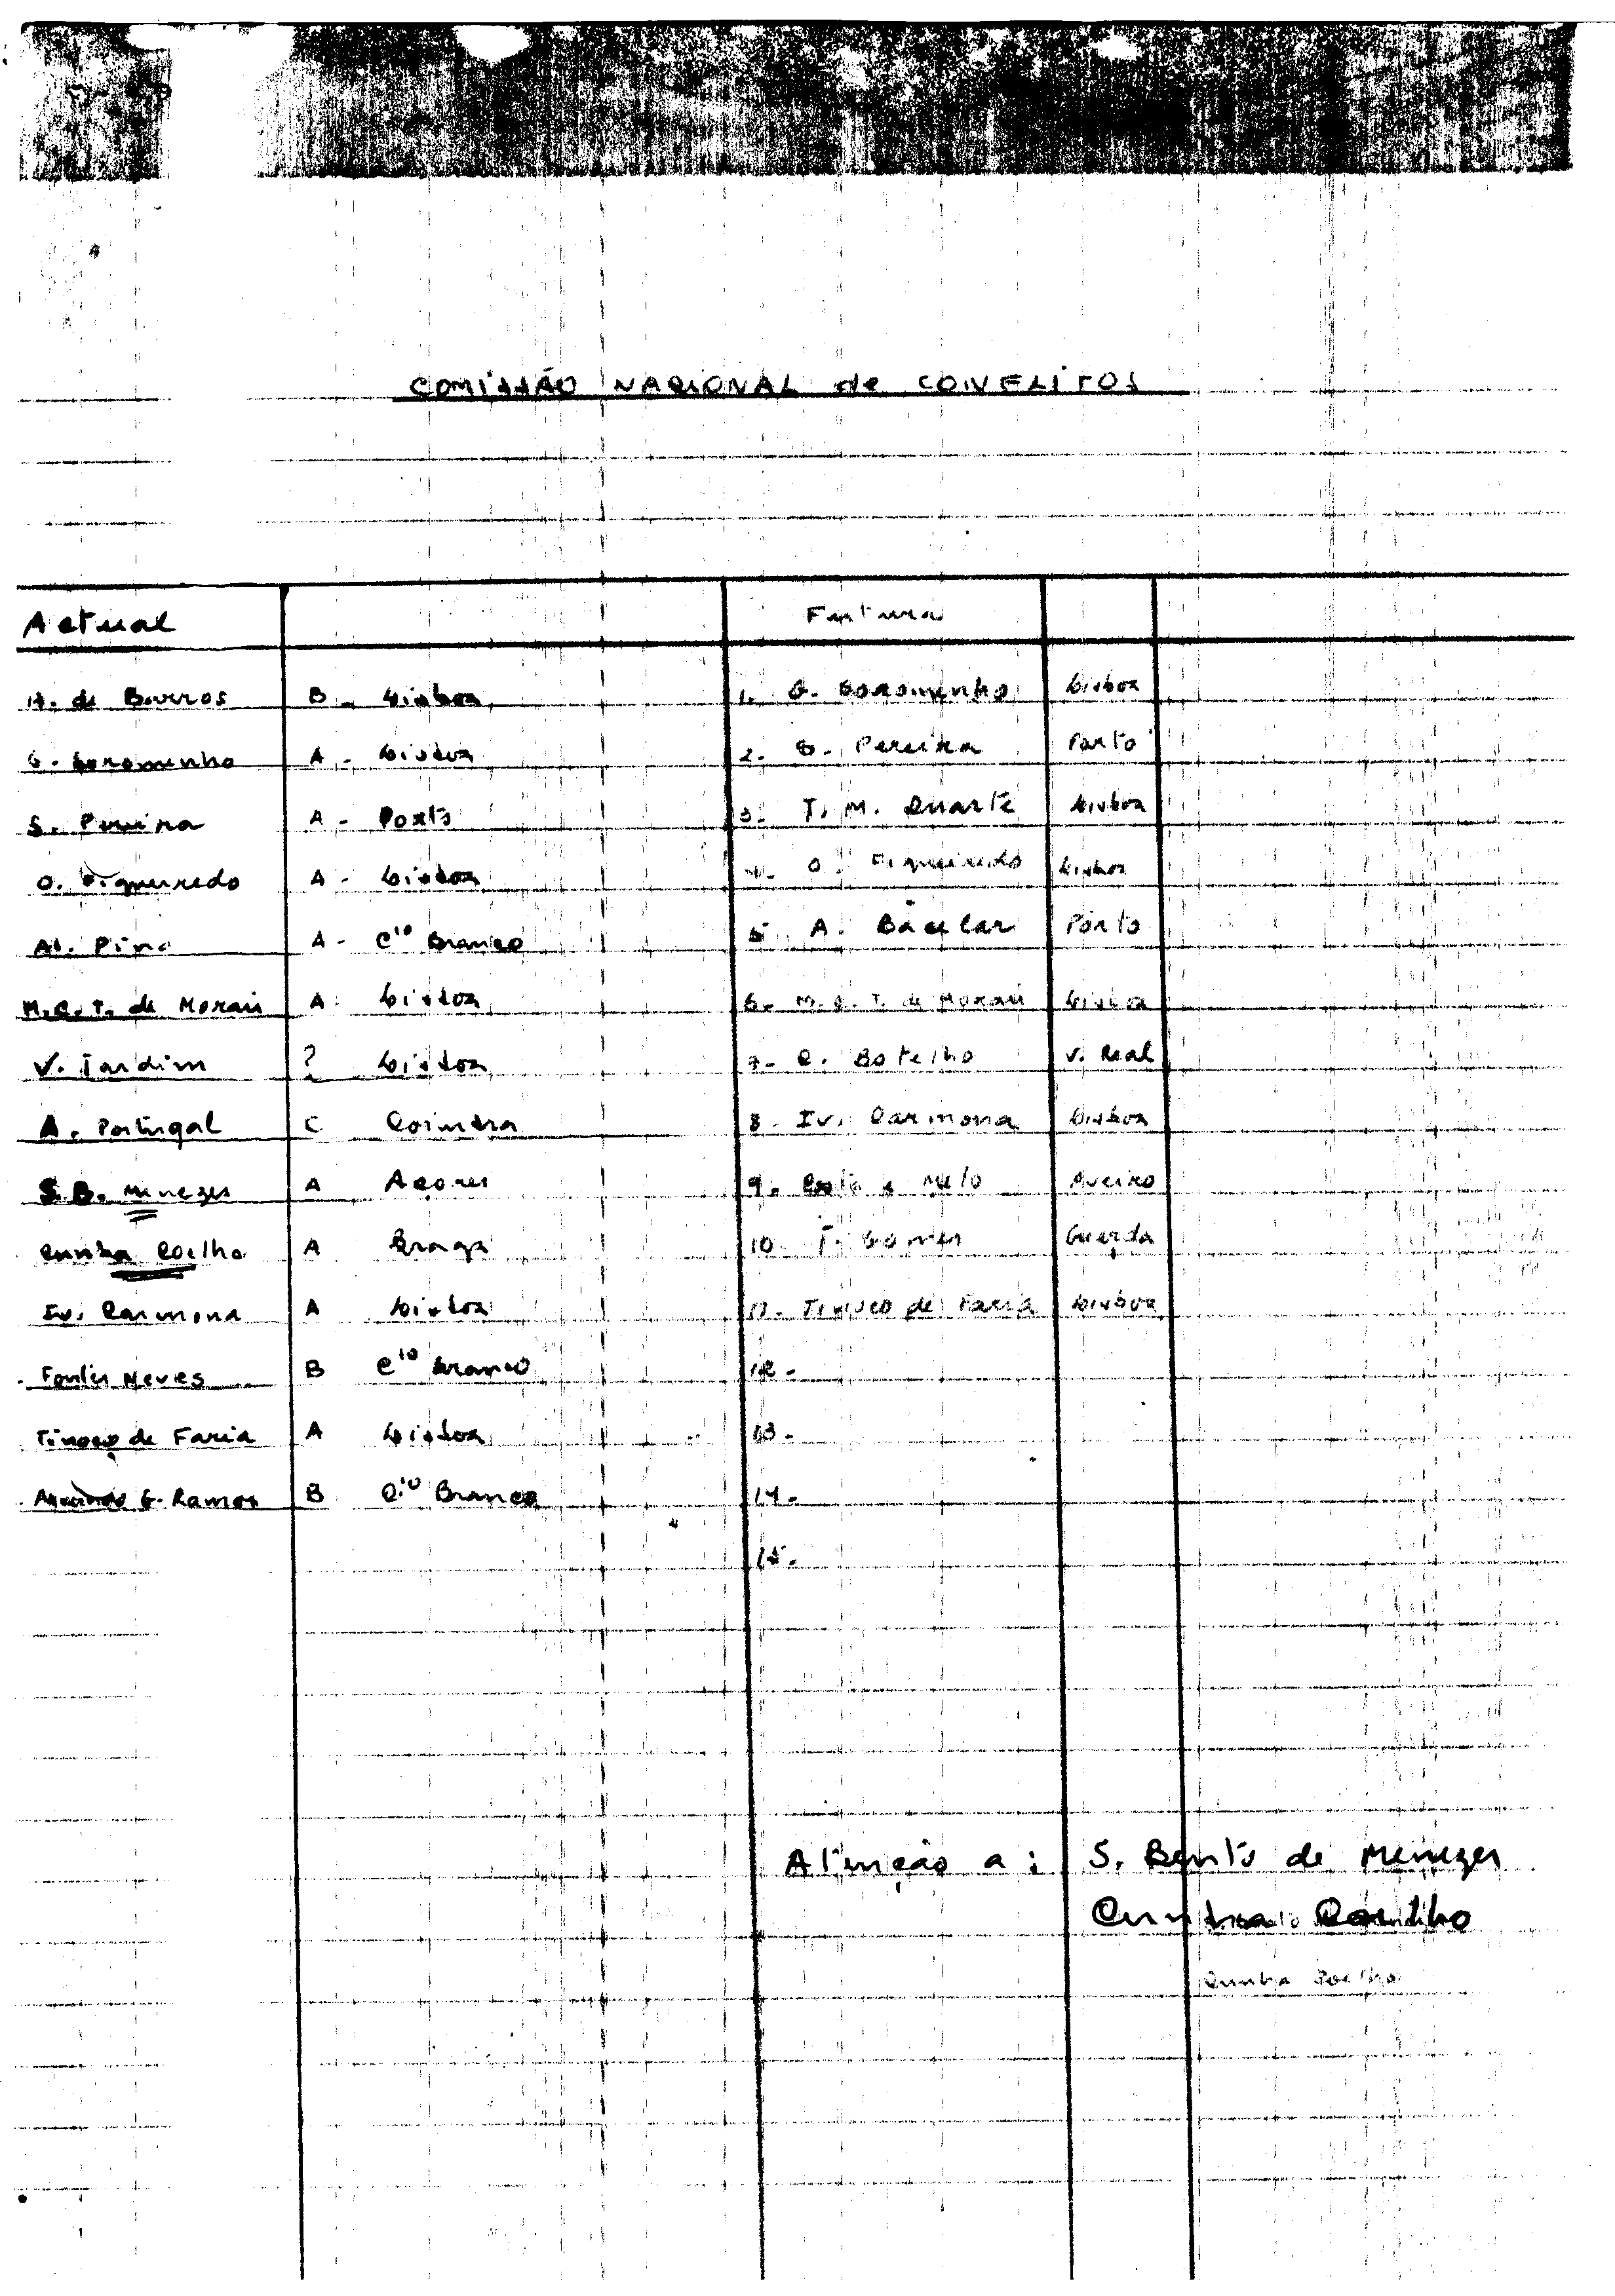 COMISSÃO NACIONAL de CONFLITOS
Actual Futura
H. de Barros B - Lisboa 1. G. Soromenho Lisboa
G. Soromenho A - Lisboa 2. S. Pereira Porto
S. Pereira A - Porto 3. T. M. Duarte Lisboa
O. Figueiredo A - Lisboa 4. O. Figueiredo Lisboa
Al. Pina A - Cto Branco 5. A. Bacelar Porto
M.C.T. de Morais A - Lisboa 6. M.C.T. de Morais Lisboa
V. Jardim ? Lisboa 7. C. Botelho V. Real
A. Portugal C Coimbra 8. Iv. Carmona Lisboa
S.B. Menezes A Açores 9. Melo Aveiro
Cunha Coelho A Braga 10. Gomes Guarda
Iv. Carmona A Lisboa 11. Tinoco de Faria Lisboa
Fontes Neves B Cto Branco 12.
Tinoco de Faria A Lisboa 13.
G. Ramos B Cto Branco 14.
15.
Atenção a: S. Bento de Menezes
Cunha Coelho
Cunha Coelho